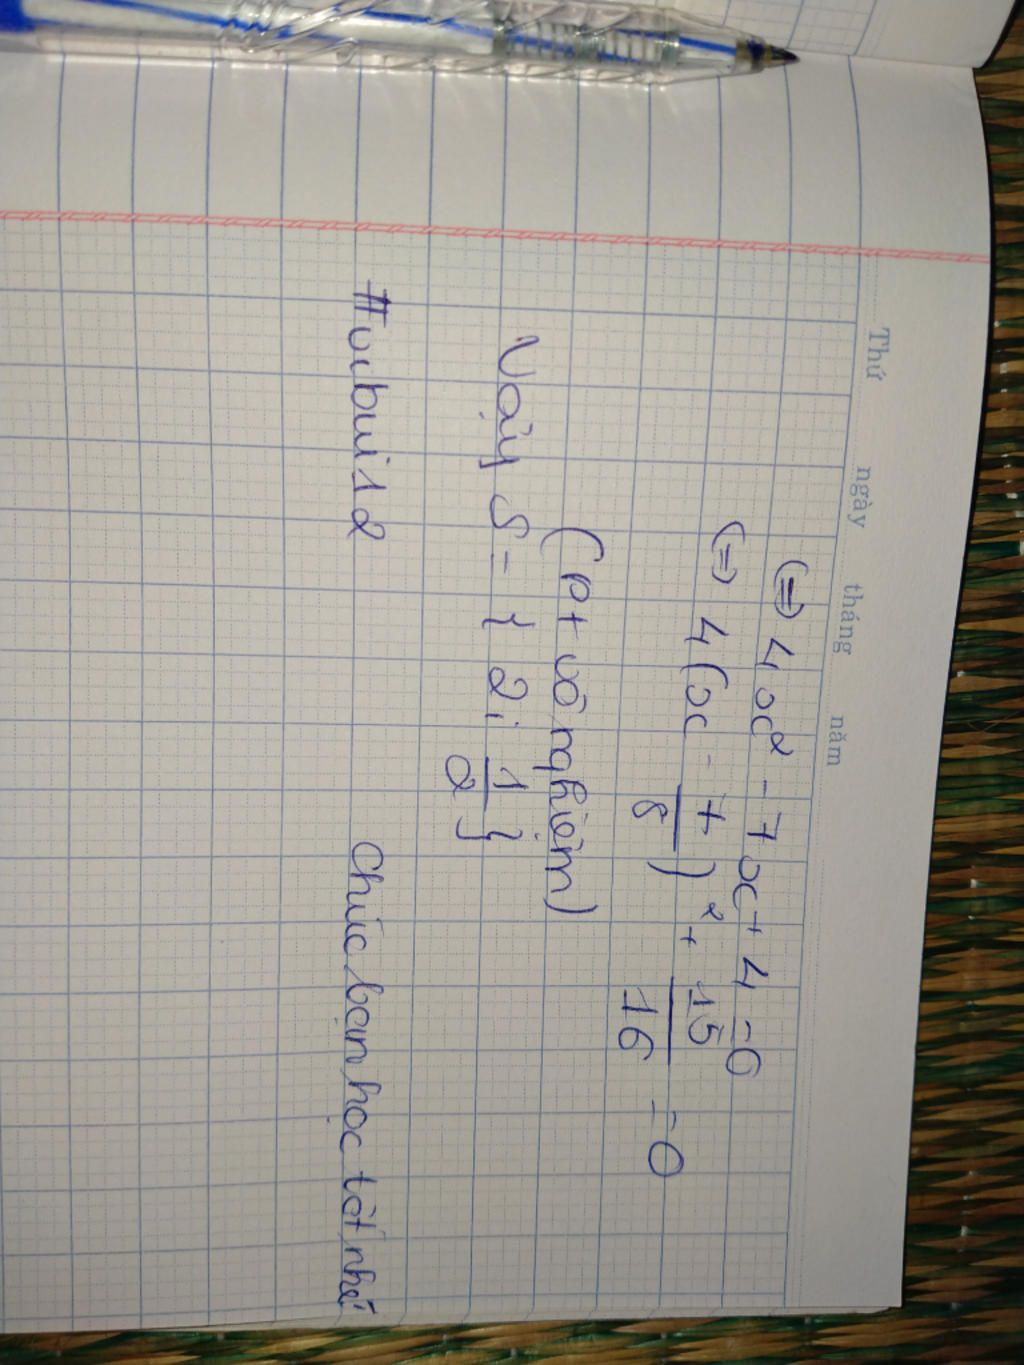 Thứ ngày tháng năm
(=) 4x² - 7x + 4 = 0
(=) 4(x - 7/8)² + 15/16 = 0
(pt vô nghiệm)
Vậy S = { 2; 1/2 }
#vubui12 Chúc bạn học tốt nhé